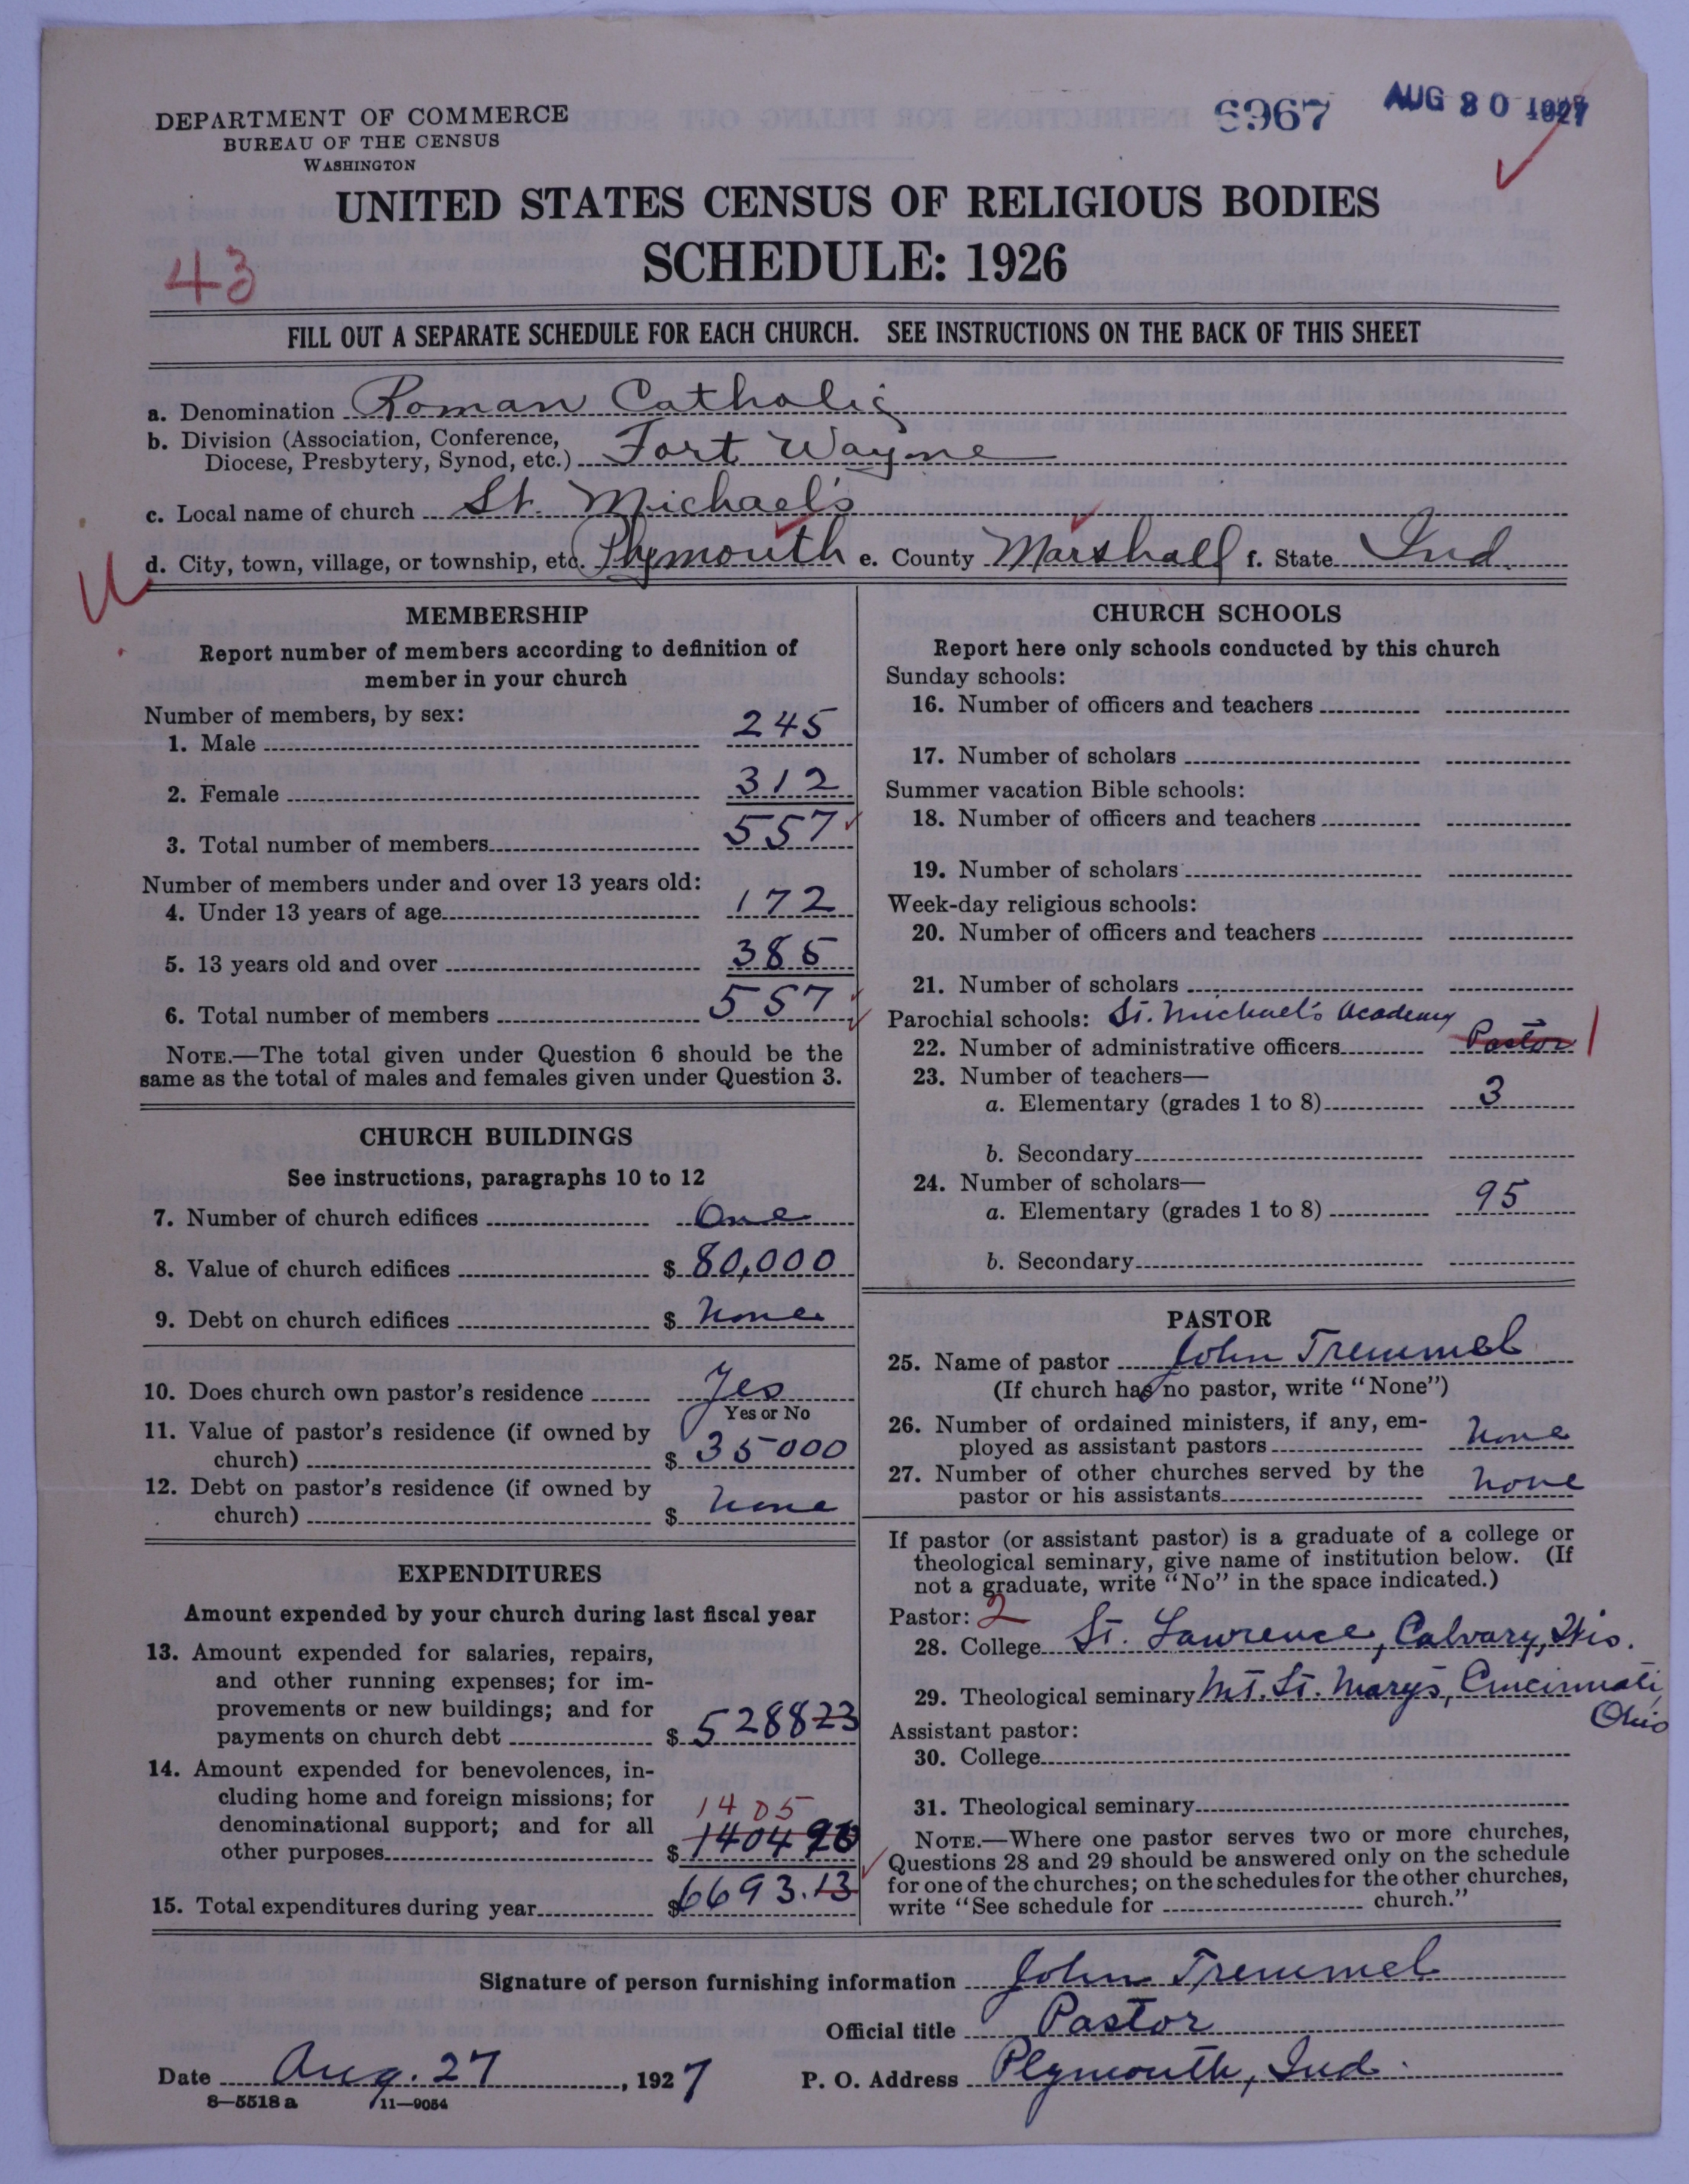 DEPARTMENT OF COMMERCE
BUREAU OF THE CENSUS
WASHINGTON
6967
AUG 30 1927
UNITED STATES CENSUS OF RELIGIOUS BODIES
SCHEDULE: 1926
43
FILL OUT A SEPARATE SCHEDULE FOR EACH CHURCH. SEE INSTRUCTIONS ON THE BACK OF THIS SHEET
a. Denomination Roman Catholic
b. Division (Association, Conference,
Diocese, Presbytery, Synod, etc.) Fort Wayne
c. Local name of church St. Michael's
d. City, town, village, or township, etc. Plymouth e. County Marshall f. State Ind.
MEMBERSHIP
Report number of members according to definition of
member in your church
Number of members, by sex:
1. Male 245
2. Female 312
3. Total number of members 557
Number of members under and over 13 years old:
4. Under 13 years of age 172
5. 13 years old and over 385
6. Total number of members 557
NOTE.—The total given under Question 6 should be the
same as the total of males and females given under Question 3.
CHURCH BUILDINGS
See instructions, paragraphs 10 to 12
7. Number of church edifices One
8. Value of church edifices $ 80,000
9. Debt on church edifices $ None
10. Does church own pastor's residence Yes
Yes or No
11. Value of pastor's residence (if owned by
church) $ 35000
12. Debt on pastor's residence (if owned by
church) $ None
EXPENDITURES
Amount expended by your church during last fiscal year
13. Amount expended for salaries, repairs,
and other running expenses; for im-
provements or new buildings; and for
payments on church debt $ 528823
14. Amount expended for benevolences, in-
cluding home and foreign missions; for
1405
denominational support; and for all
other purposes $ 140490
15. Total expenditures during year $ 6693.13
CHURCH SCHOOLS
Report here only schools conducted by this church
Sunday schools:
16. Number of officers and teachers
17. Number of scholars
Summer vacation Bible schools:
18. Number of officers and teachers
19. Number of scholars
Week-day religious schools:
20. Number of officers and teachers
21. Number of scholars
Parochial schools: St. Michael's Academy
22. Number of administrative officers Pastor 1
23. Number of teachers—
a. Elementary (grades 1 to 8) 3
b. Secondary
24. Number of scholars—
a. Elementary (grades 1 to 8) 95
b. Secondary
PASTOR
25. Name of pastor John Tremmel
(If church has no pastor, write "None")
26. Number of ordained ministers, if any, em-
ployed as assistant pastors None
27. Number of other churches served by the
pastor or his assistants None
If pastor (or assistant pastor) is a graduate of a college or
theological seminary, give name of institution below. (If
not a graduate, write "No" in the space indicated.)
Pastor: 2
28. College St. Lawrence, Calvary, Wis.
29. Theological seminary Mt. St. Mary's, Cincinnati,
Ohio
Assistant pastor:
30. College
31. Theological seminary
NOTE.—Where one pastor serves two or more churches,
Questions 28 and 29 should be answered only on the schedule
for one of the churches; on the schedules for the other churches,
write "See schedule for church."
Signature of person furnishing information John Tremmel
Official title Pastor
Date Aug. 27, 1927 P. O. Address Plymouth, Ind.
8—5518 a 11—9054